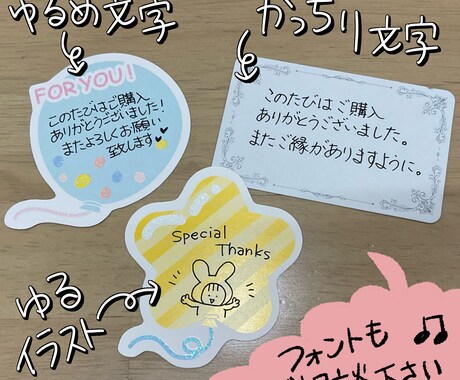 ゆるめ文字
かっちり文字
FOR YOU!
このたびはご購入
ありがとうございました!
またよろしくお願い
致します
このたびはご購入
ありがとうございました。
またご縁がありますように。
Special
Thanks
ゆる
イラスト
フォントも
下さい